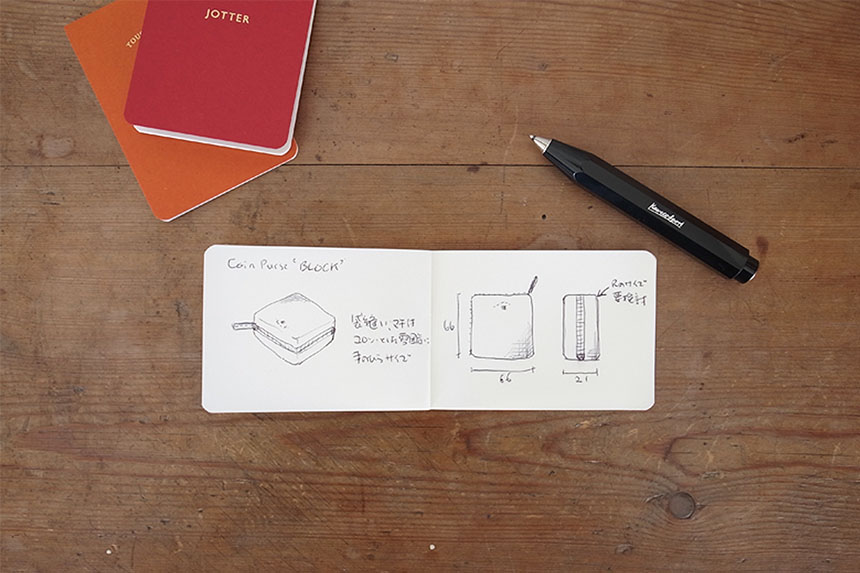 JOTTER
TOUC
Kaweco Sport
Coin Purse "BLOCK"
袋縫い、マチは
コロンとした雰囲気に
手のひらサイズ
66
66
Rのサイズ
要検討
21